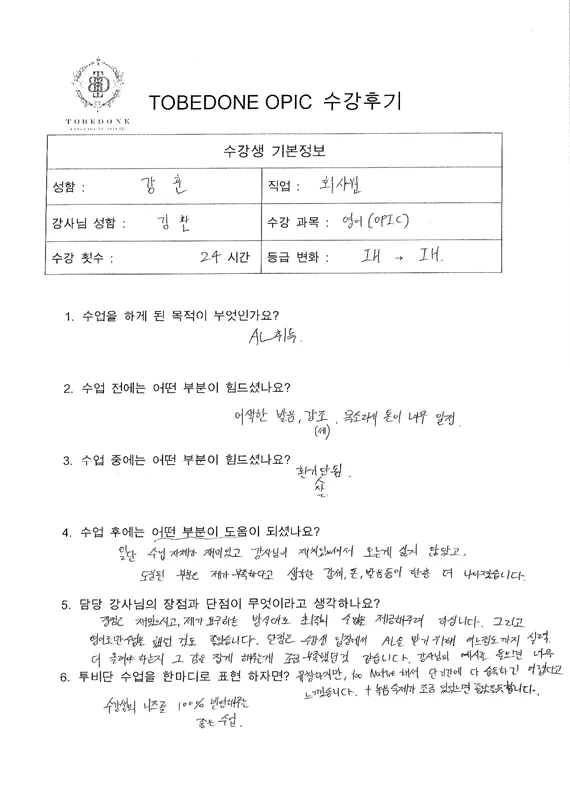 TOBEDONE
TOBEDONE OPIC 수강후기
수강생 기본정보
성함 : 강훈 직업 : 회사원
강사님 성함 : 김찬 수강 과목 : 영어 (OPIC)
수강 횟수 : 24 시간 등급 변화 : IH → IH.
1. 수업을 하게 된 목적이 무엇인가요?
AL 취득.
2. 수업 전에는 어떤 부분이 힘드셨나요?
어색한 발음, 강조, 목소리에 톤이 너무 일정.
(세)
3. 수업 중에는 어떤 부분이 힘드셨나요?
4. 수업 후에는 어떤 부분이 도움이 되셨나요?
일단 수업 자체가 재미있고 강사님이 재치있어서 오는게 싫지 않았고,
도움된 부분은 제가 부족하다고 생각한 강세, 톤, 발음등이 한층 더 나아졌습니다.
5. 담당 강사님의 장점과 단점이 무엇이라고 생각하나요?
장점은 재밌으시고, 제가 요구하는 방식대로 최대한 수업을 제공해주려 하십니다. 그리고
영어로만 수업을 했던 것도 좋았습니다. 단점은 수강생 입장에서 AL을 받기 위해 어느정도까지 실력
더 늘려야 하는지 그 감을 잡게 해주는게 조금 부족했던것 같습니다. 강사님의 예시를 들으면 너무
6. 투비단 수업을 한마디로 표현 하자면? 굉장하지만, too Native 해서 단기간에 다 습득하긴 어렵다고
느꼈습니다. + 복습 숙제가 조금 있었으면
수강생의 니즈를 100% 반영해주는
좋은 수업.